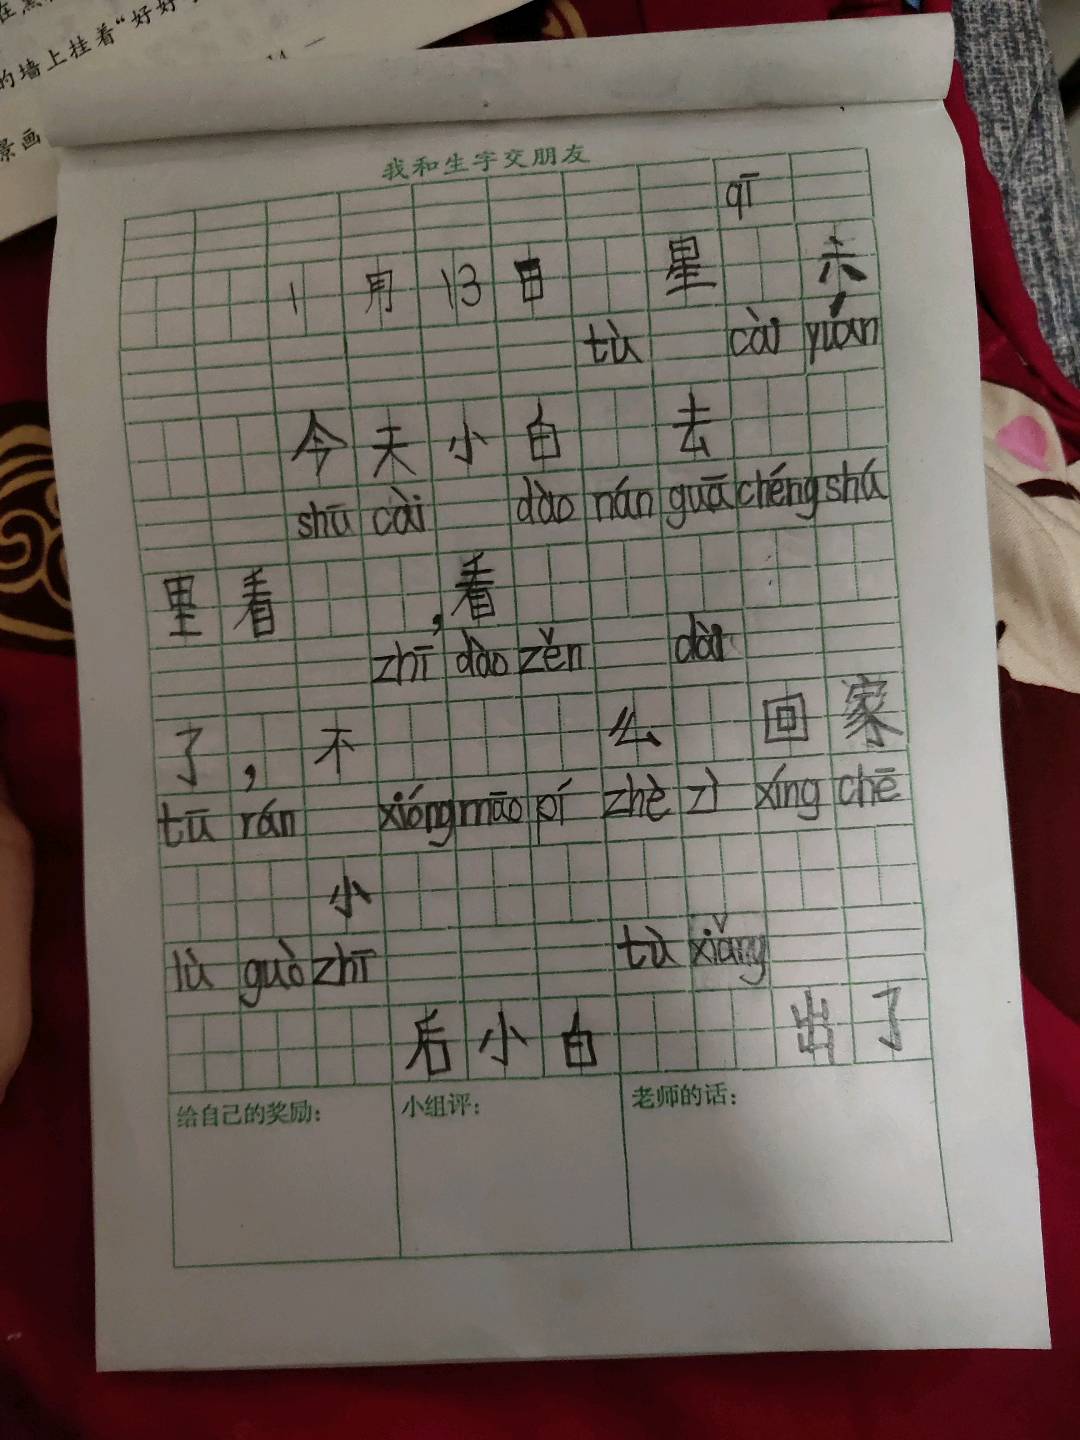 在黑
的墙上挂着“好好
景画
我和生字交朋友
qī
1 月 13 日 星 六
tù cài yuán
今 天 小 白 去
shū cài dào nán guā chéng shú
里 看 , 看
zhī dào zěn dài
了 , 不 么 回 家
tū rán xióng māo pí zhè zì xíng chē
小
lù guò zhī tù xiǎng
后 小 白 出 了
给自己的奖励：
小组评：
老师的话：